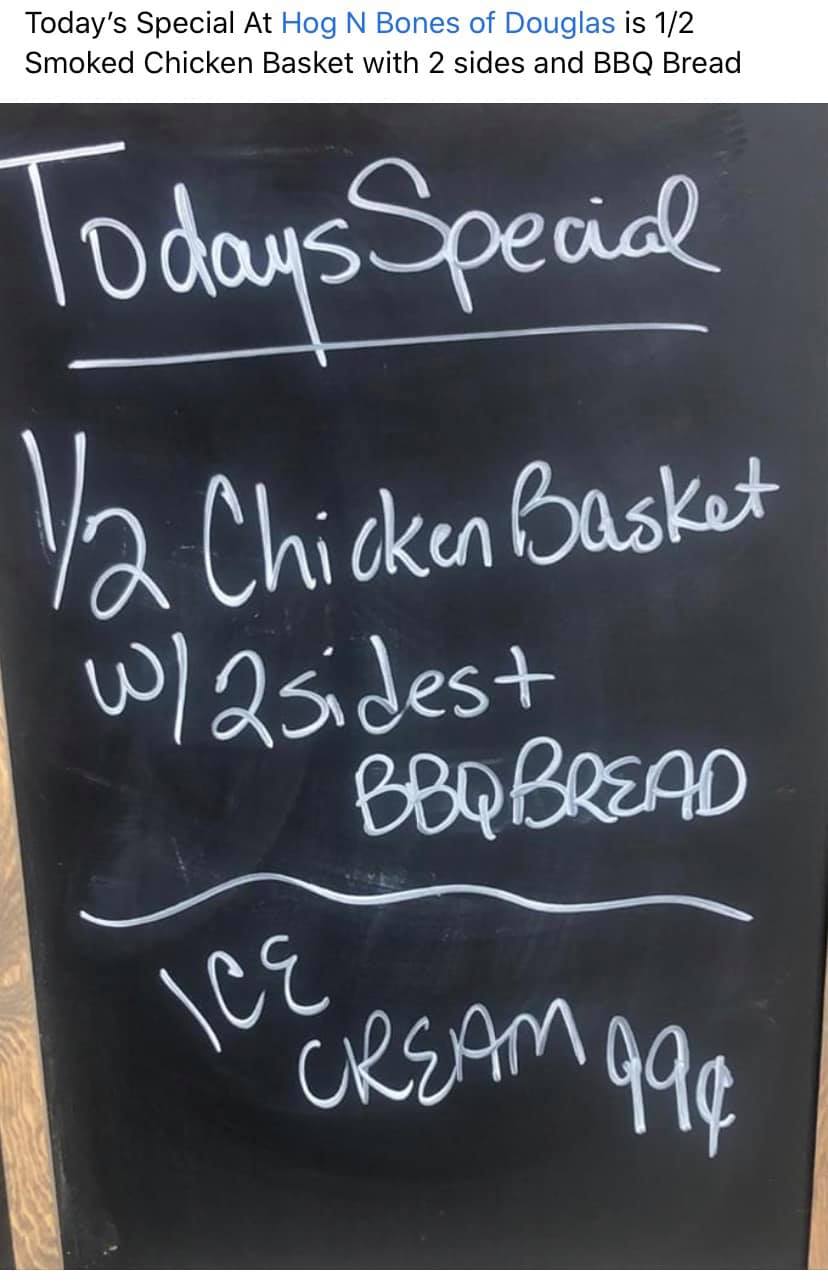 Today’s Special At Hog N Bones of Douglas is 1/2
Smoked Chicken Basket with 2 sides and BBQ Bread
Todays Special
1/2 Chicken Basket
w/ 2 sides +
BBQ BREAD
ICE
CREAM 99¢